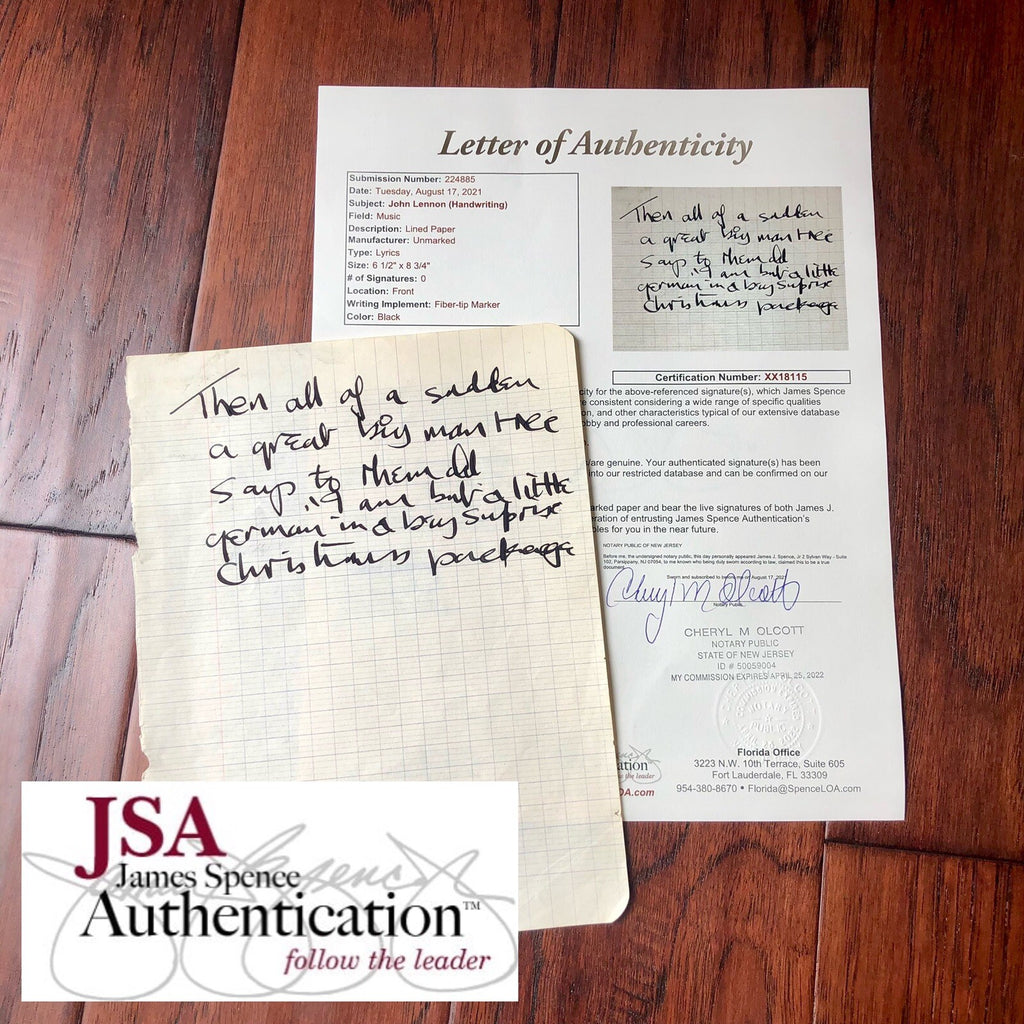 Letter of Authenticity
Submission Number: 224885
Date: Tuesday, August 17, 2021
Subject: John Lennon (Handwriting)
Field: Music
Description: Lined Paper
Manufacturer: Unmarked
Type: Lyrics
Size: 6 1/2" x 8 3/4"
# of Signatures: 0
Location: Front
Writing Implement: Fiber-tip Marker
Color: Black
Then all of a sudden
a great big man tree
says to them dd
I am but a little
german in a big suprise
Christmas package
Certification Number: XX18115
ity for the above-referenced signature(s), which James Spence
e consistent considering a wide range of specific qualities
on, and other characteristics typical of our extensive database
obby and professional careers.
/are genuine. Your authenticated signature(s) has been
into our restricted database and can be confirmed on our
arked paper and bear the live signatures of both James J.
eration of entrusting James Spence Authentication's
bles for you in the near future.
NOTARY PUBLIC OF NEW JERSEY
Before me, the undersigned notary public, this day personally appeared James J. Spence, Jr 2 Sylvan Way - Suite
102, Parsippany, NJ 07054, to me known who being duly sworn according to law, claimed this to be a true
document.
Sworn and subscribed to before me on August 17, 2021
Cheryl M Olcott
Notary Public
CHERYL M OLCOTT
NOTARY PUBLIC
STATE OF NEW JERSEY
ID # 50059004
MY COMMISSION EXPIRES APRIL 25, 2022
Florida Office
3223 N.W. 10th Terrace, Suite 605
Fort Lauderdale, FL 33309
954-380-8670 • Florida@SpenceLOA.com
ation
w the leader
OA.com
Then all of a sudden
a great big man tree
says to them dd
I am but a little
german in a big suprise
Christmas package
JSA
James Spence
Authentication™
follow the leader